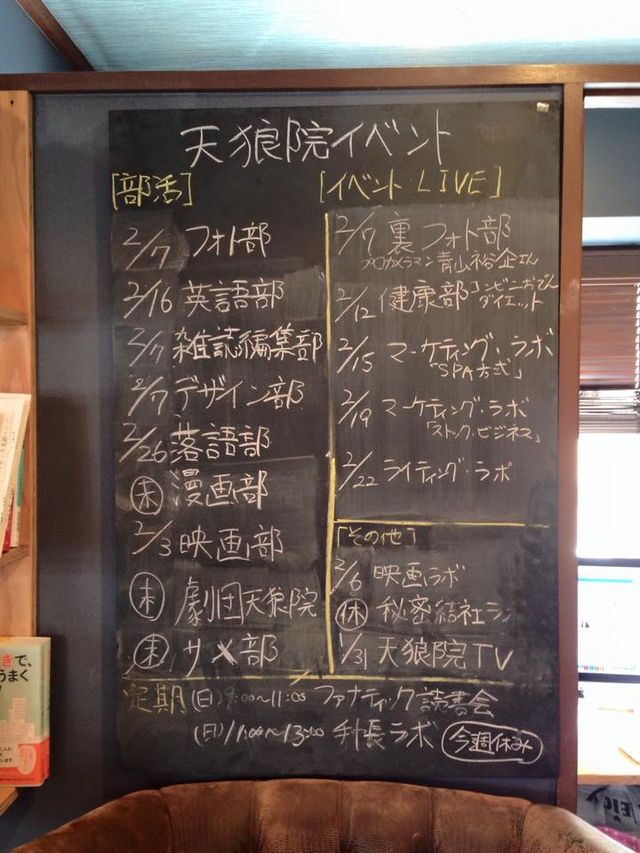 天狼院イベント
[部活]
2/7 フォト部
2/16 英語部
2/7 雑誌編集部
2/7 デザイン部
2/26 落語部
未 漫画部
2/3 映画部
未 劇団天狼院
未 サメ部
[イベント・LIVE]
2/7 裏フォト部
プロカメラマン青山裕企さん
2/12 健康部 コンビニおでん
ダイエット
2/15 マーケティング・ラボ
「SPA方式」
2/19 マーケティング・ラボ
「ストック・ビジネス」
2/22 ライティング・ラボ
[その他]
2/6 映画ラボ
休 秘密結社
1/31 天狼院TV
定期 (日) 9:00~11:00 ファナティック読書会
(日) 11:00~13:00 ラボ 今週休み
きで、
うまく